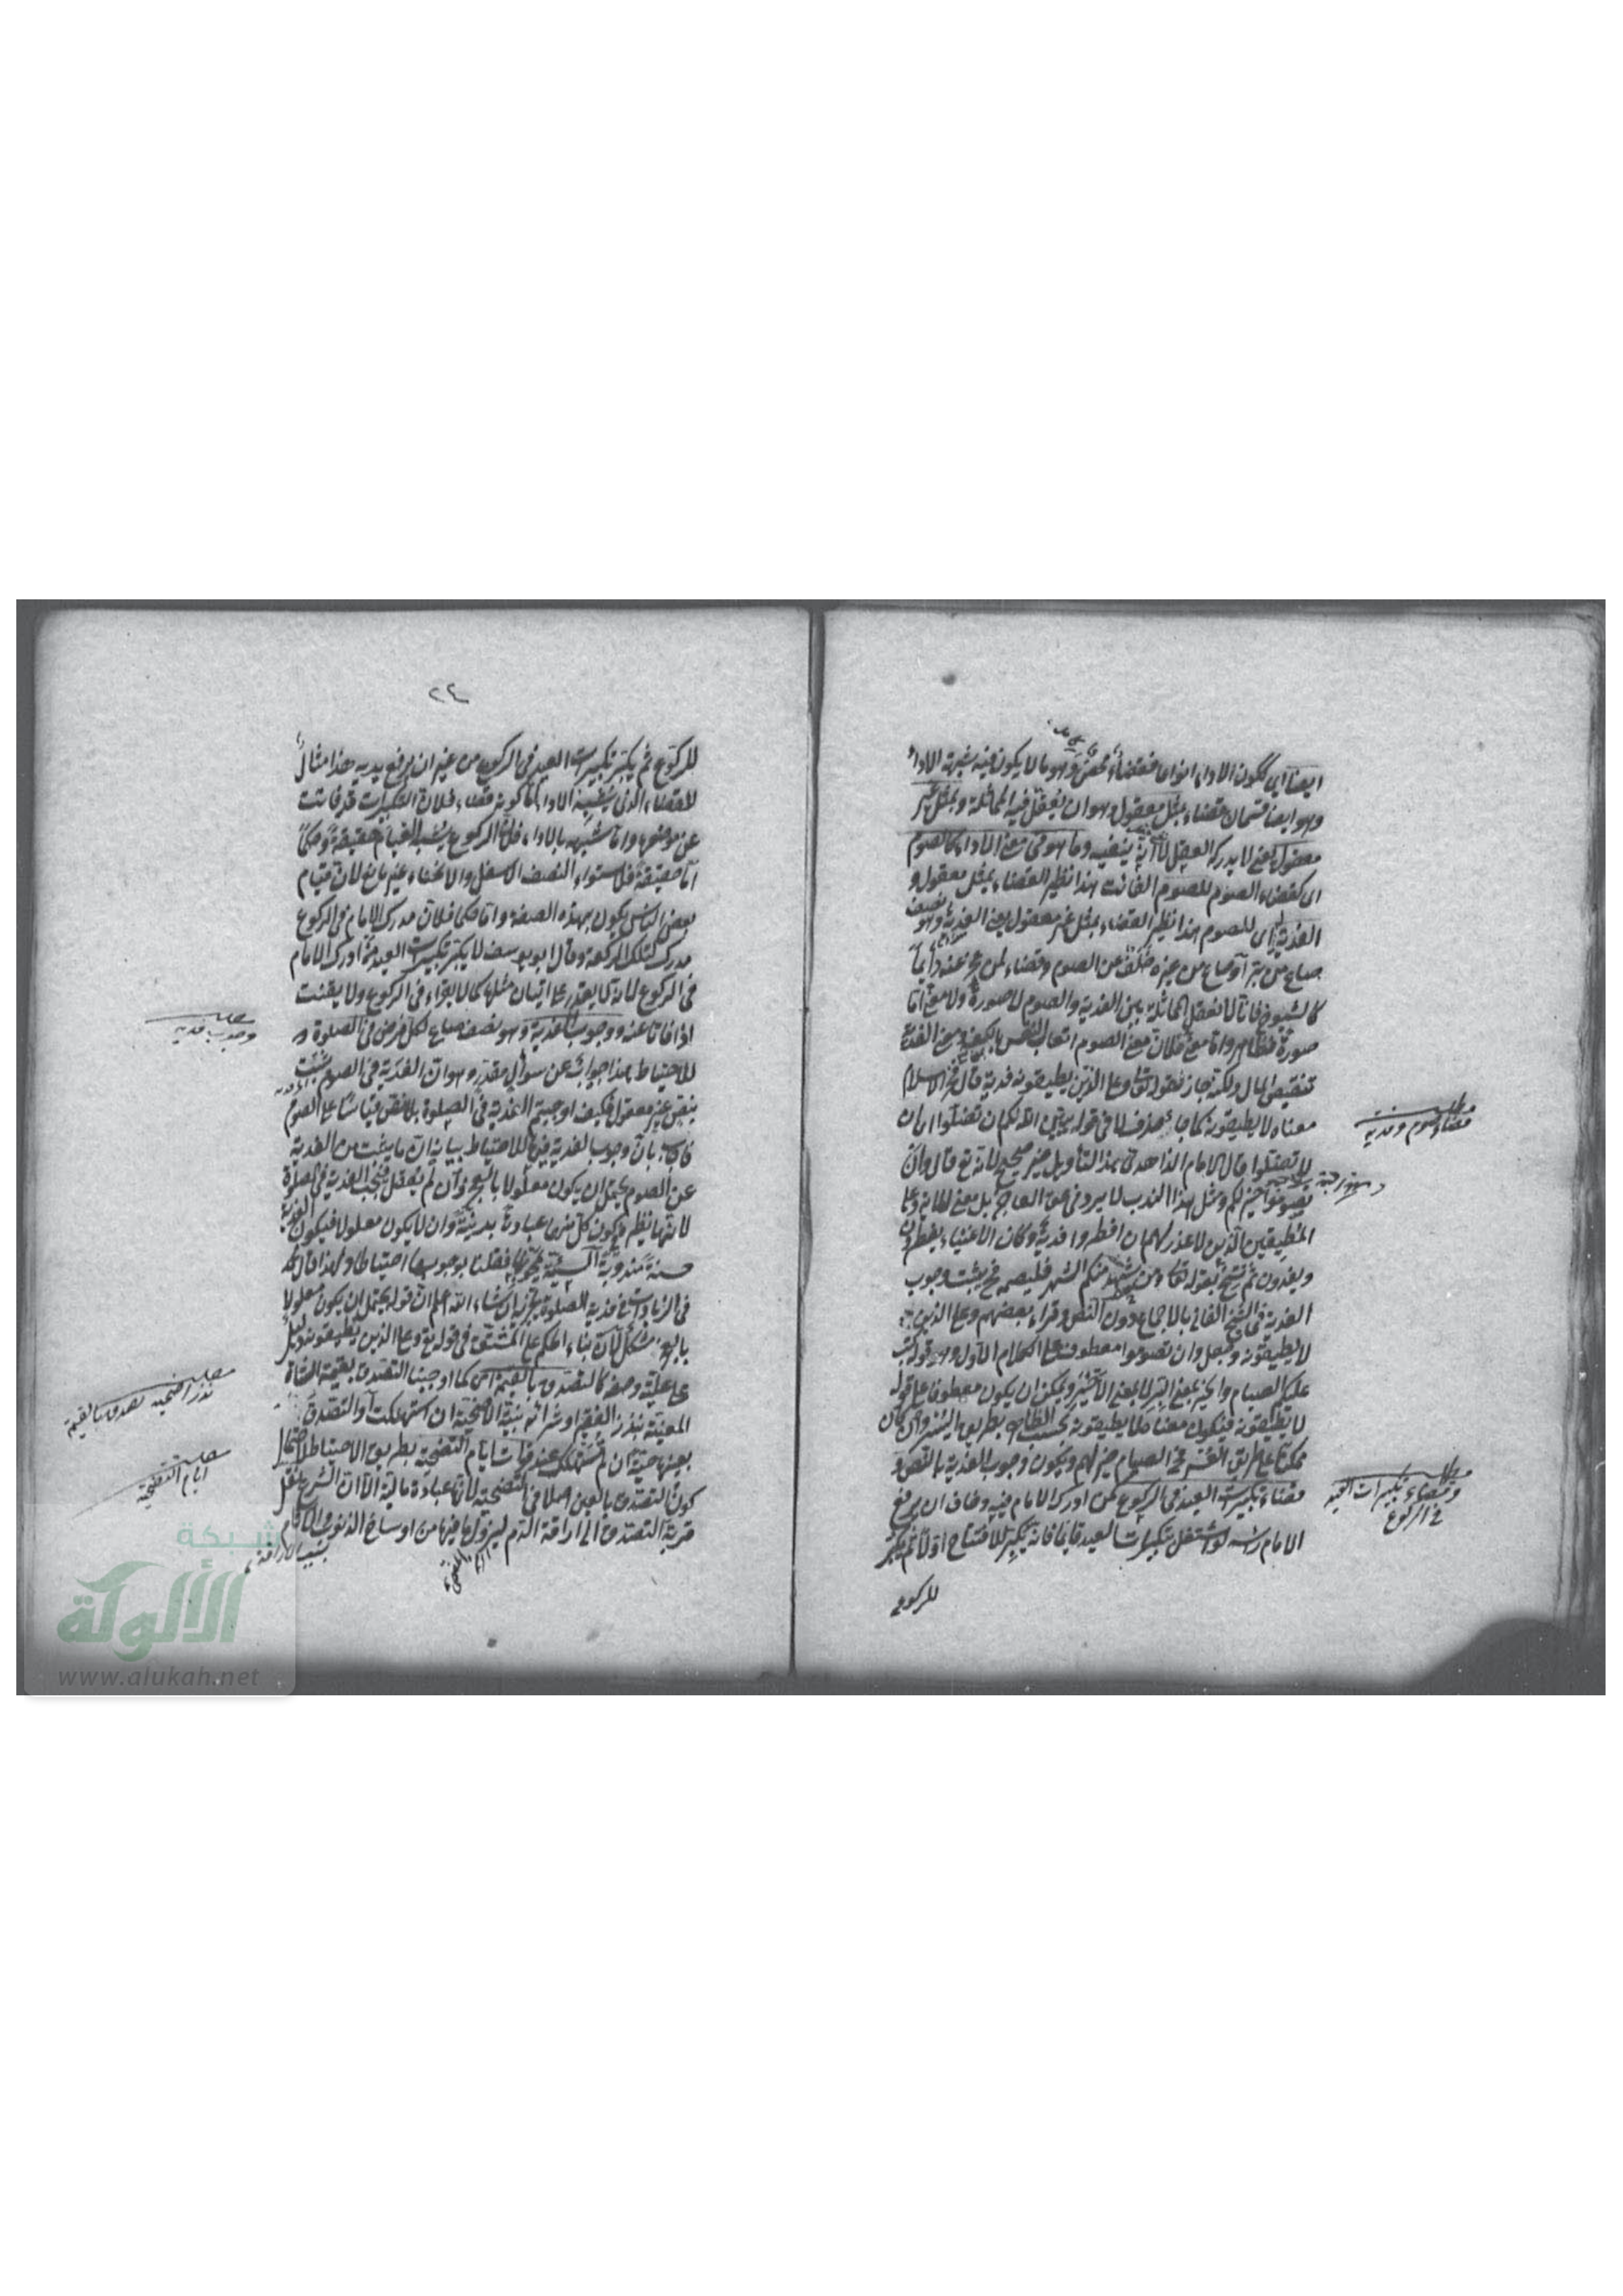 ايضا اى ككون الاداء انواعا فقضاء محض وهو ما لا يكون فيه شبهة الاداء
وهو ايضا قسمان قضاء بمثل معقول وهو ان يعقل فيه المماثلة وبمثل غير
معقول يعنى لا يدركه العقل لا انه ينفيه وما هو فى معنى الاداء كالصوم
اى كقضاء الصوم للصوم الفائت هذا نظير القضاء بمثل معقول و
الفدية اى للصوم هذا نظير القضاء بمثل غير معقول يعنى الفدية وهو نصف
صاع من بر او صاع من غيره خلف عن الصوم وقضاء لمن عجز عنه دائما
كالشيوخ فانا لا نعقل المماثلة بين الفدية والصوم لا صورة ولا معنى اما
صورة فظاهر واما معنى فلان معنى الصوم اتعاب النفس بالكف ومعنى الفدية
تنقيص المال ولكنه جاز بقوله تعالى وعلى الذين يطيقونه فدية قال فخر الاسلام
معناه لا يطيقونه كما جاء حذف لا فى قوله يبين الله لكم ان تضلوا اى ان
لا تضلوا قال الامام الزاهدى هذا التأويل غير صحيح لانه تع قال وان
تصوموا خير لكم ومثل هذا الندب لا يرد فى حق العاجز بل معنى الآية وعلى
المطيقين الذين لا عذر لهم ان افطروا فدية وكان الاغنياء يفطرون
ويفدون ثم نسخ بقوله تعالى فمن شهد منكم الشهر فليصمه فح يثبت وجوب
الفدية فى الشيخ الفانى بالاجماع دون النص وقراء بعضهم وعلى الذين
لا يطيقونه وجعل وان تصوموا معطوفا على الكلام الاول وهو قوله كتب
عليكم الصيام والخير بمعنى البر لا بمعنى الاخير ويمكن ان يكون معطوفا على قوله
لا يطيقونه فيكون معناه لا يطيقونه بحسب الظاهر بطريق اليسر وان كان
ممكنا على طريق العسر فح الصيام خير لهم ويكون وجوب الفدية بالنص و
قضاء تكبيرات العيد فى الركوع كمن ادرك الامام فيه وخاف ان يرفع
الامام رأسه لو اشتغل بتكبيرات العيد قائما فانه يكبر للافتتاح اولا ثم يكبر
للركوع
مطلب
قضاء الصوم وفدية
مطلب
وقضاء تكبيرات العيد
فى الركوع
٢٤
للركوع ثم يكبر تكبيرات العيد فى الركوع من غير ان يرفع يديه هذا مثال
للقضاء الذى يشبه الاداء اما كونه قضاء فلان التكبيرات قد فاتت
عن موضعها واما شبهه بالاداء فلان الركوع يشبه القيام حقيقة وحكما
اما حقيقة فلاستواء النصف الاسفل والانحناء غير مانع لان قيام
بعض الناس يكون بهذه الصفة واما حكما فلان مدرك الامام فى الركوع
مدرك لتلك الركعة وقال ابو يوسف لا يكبر تكبيرات العيد متى ادرك الامام
فى الركوع لانه لا يقدر على اتيان مثلها كما لا يقراء فى الركوع ولا يقنت
اذا فاتا عنه ووجوب الفدية وهو نصف صاع لكل فرض فى الصلوة
للاحتياط هذا جواب عن سؤال مقدر وهو ان الفدية فى الصوم ثبتت
بنص غير معقول فكيف اوجبتم الفدية فى الصلوة بلا نص قياسا على الصوم
فاجاب بان وجوب الفدية فيها للاحتياط بيانه ان ما يثبت من الفدية
عن الصوم يحتمل ان يكون معلولا بالعجز وان لم يعقل فتجب الفدية فى الصلوة
لانها نظيره لكون كل منهما عبادة بدنية وان لا يكون معلولا فيكون الفدية
حسنة مندوبة السيئة تمحوها فقلنا بوجوبها احتياطا ولهذا قال محمد
فى الزيادات فى فدية الصلوة يجزيه ان شاء الله اعلم ان قوله يحتمل ان يكون معلولا
بالعجز مشكل لان بناء الحكم على المشتق فى قوله تع وعلى الذين يطيقونه دليل
على علية وصفه كالتصدق بالقيمة اى كما اوجبنا التصدق بقيمة الشاة
المعينة بنذر الفقير او شرائه بنية الاضحية ان استهلكت او التصدق
بعينها حية ان لم تستهلك عند فوات ايام التضحية بطريق الاحتياط لاحتمال
كون التصدق بالعين اصلا فى التضحية لانها عبادة مالية الا ان الشرع نقل
قربة التصدق الى اراقة الدم ليزول ما فيها من اوساخ الذنوب والآثام
بسبب الاراقة
مطلب
وجوب فدية
مطلب
نذر اضحية تصدق بالقيمة
مطلب
ايام التضحية
شبكة
الألوكة
www.alukah.net